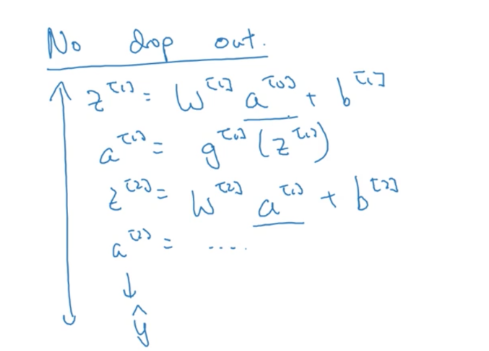 No drop out.
z^[1] = W^[1] a^[0] + b^[1]
a^[1] = g^[1] (z^[1])
z^[2] = W^[2] a^[1] + b^[2]
a^[2] = ....
↓
ŷ